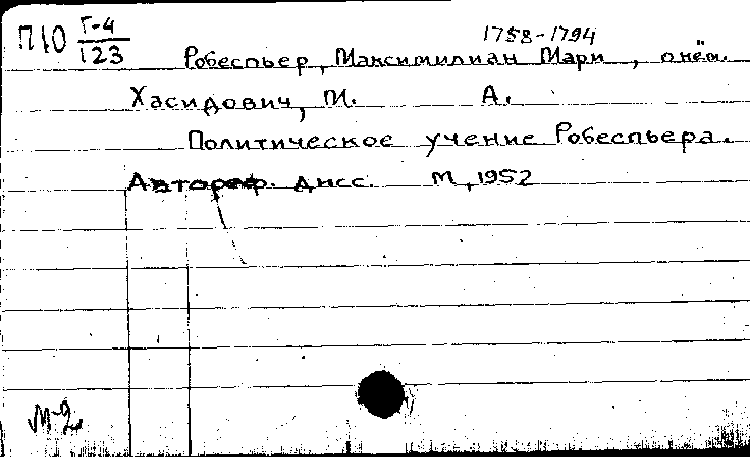 П10 Г-4/123
1758-1794
Робеспьер, Максимилиан Мари, о нём.
Хасидович, И. А.
Политическое учение Робеспьера.
Автореф. дисс. М, 1952
М-2